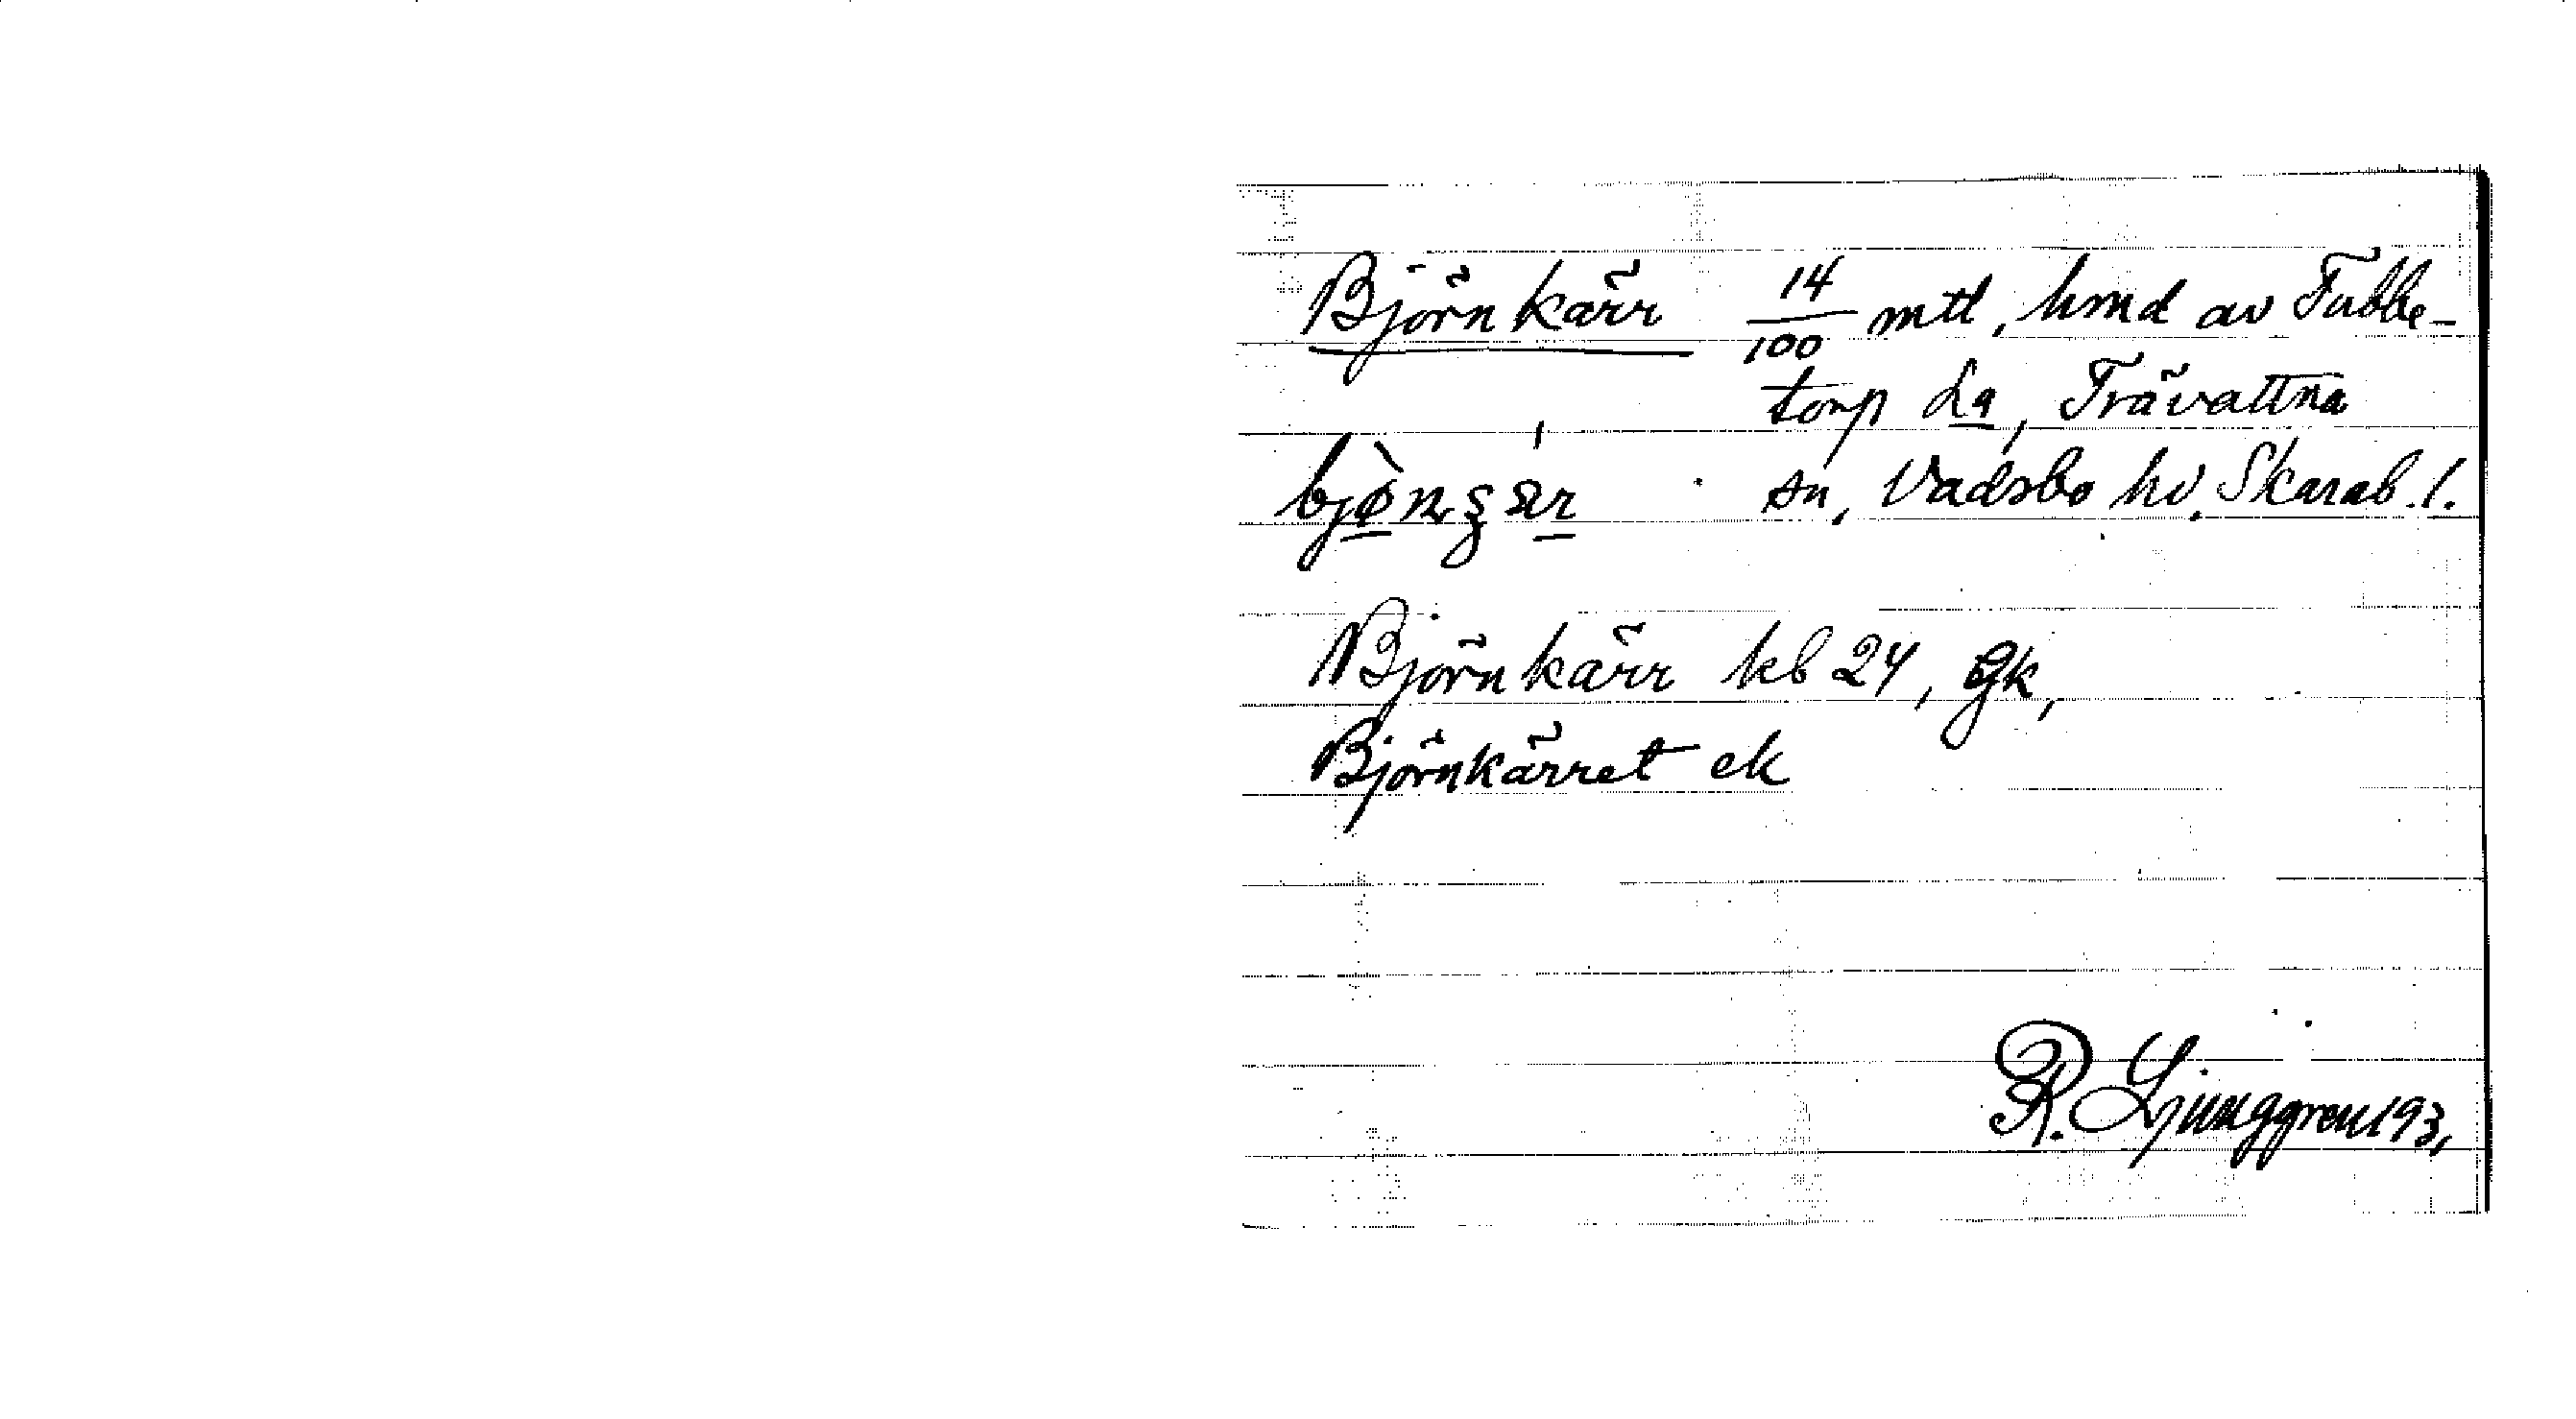 Björnkärr 14/100 mtl, hmd av Tubbe-
torp La, Trävattna
sn, Vadsbo hd. Skarab. l.
Björnkärr kb 24, Gk,
Björnkärret ek
R. Ljunggren 193,